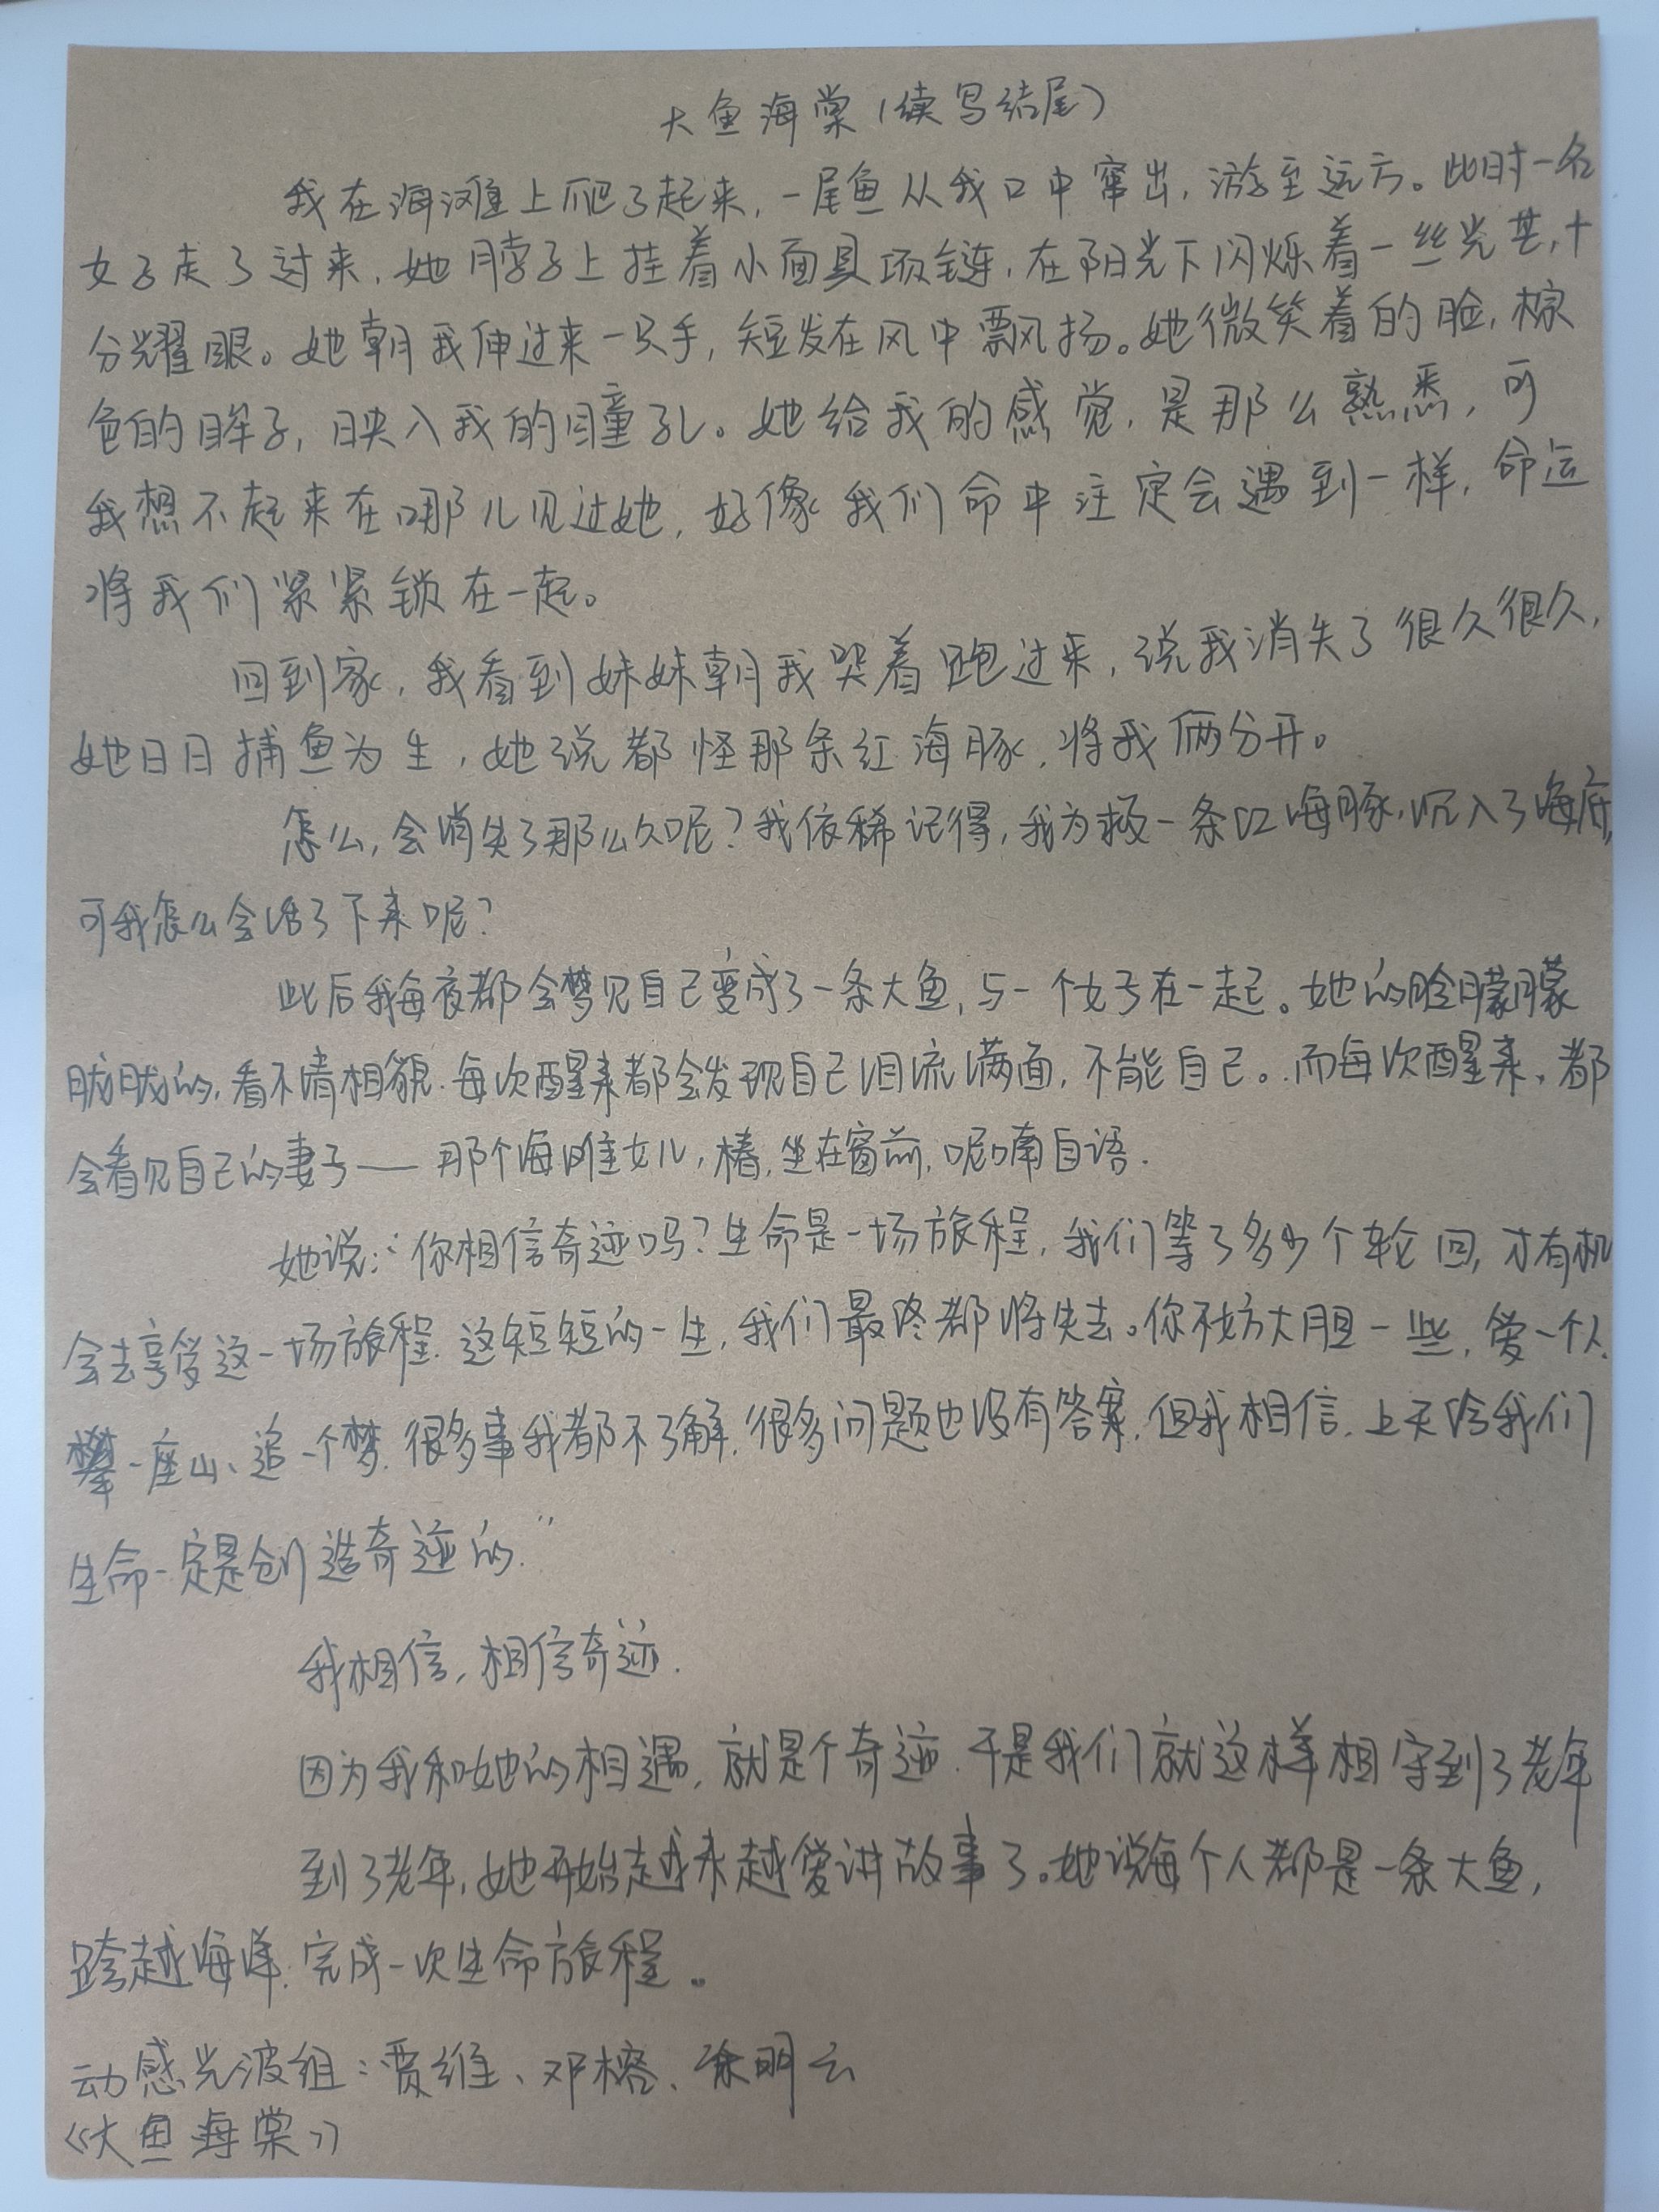 大鱼海棠（续写结尾）
我在海滩上爬了起来，一尾鱼从我口中窜出，游至远方。此时一名
女子走了过来，她脖子上挂着小面具项链，在阳光下闪烁着一丝光芒，十
分耀眼。她朝我伸过来一只手，短发在风中飘扬。她微笑着的脸，棕
色的眸子，映入我的瞳孔。她给我的感觉，是那么熟悉，可
我想不起来在哪儿见过她，好像我们命中注定会遇到一样，命运
将我们紧紧锁在一起。
回到家，我看到妹妹朝我哭着跑过来，说我消失了很久很久，
她日日捕鱼为生，她说都怪那条红海豚，将我俩分开。
怎么，会消失了那么久呢？我依稀记得，我为救一条红海豚，沉入了海底，
可我怎么会活了下来呢？
此后我每夜都会梦见自己变成了一条大鱼，与一个女子在一起。她的脸朦朦
胧胧的，看不清相貌.每次醒来都会发现自己泪流满面，不能自己。而每次醒来，都
会看见自己的妻子——那个海滩女儿，椿，坐在窗前，呢喃自语.
她说：“你相信奇迹吗？生命是一场旅程，我们等了多少个轮回，才有机
会去享受这一场旅程.这短短的一生，我们最终都将失去。你不妨大胆一些，爱一个人、
攀一座山、追一个梦.很多事我都不了解，很多问题也没有答案，但我相信.上天给我们
生命一定是创造奇迹的.”
我相信，相信奇迹.
因为我和她的相遇，就是个奇迹.于是我们就这样相守到了老年
到了老年，她开始越来越爱讲故事了。她说每个人都是一条大鱼，
跨越海洋.完成一次生命旅程。
动感光波组：贾维、邓榕、徐明云
《大鱼海棠》